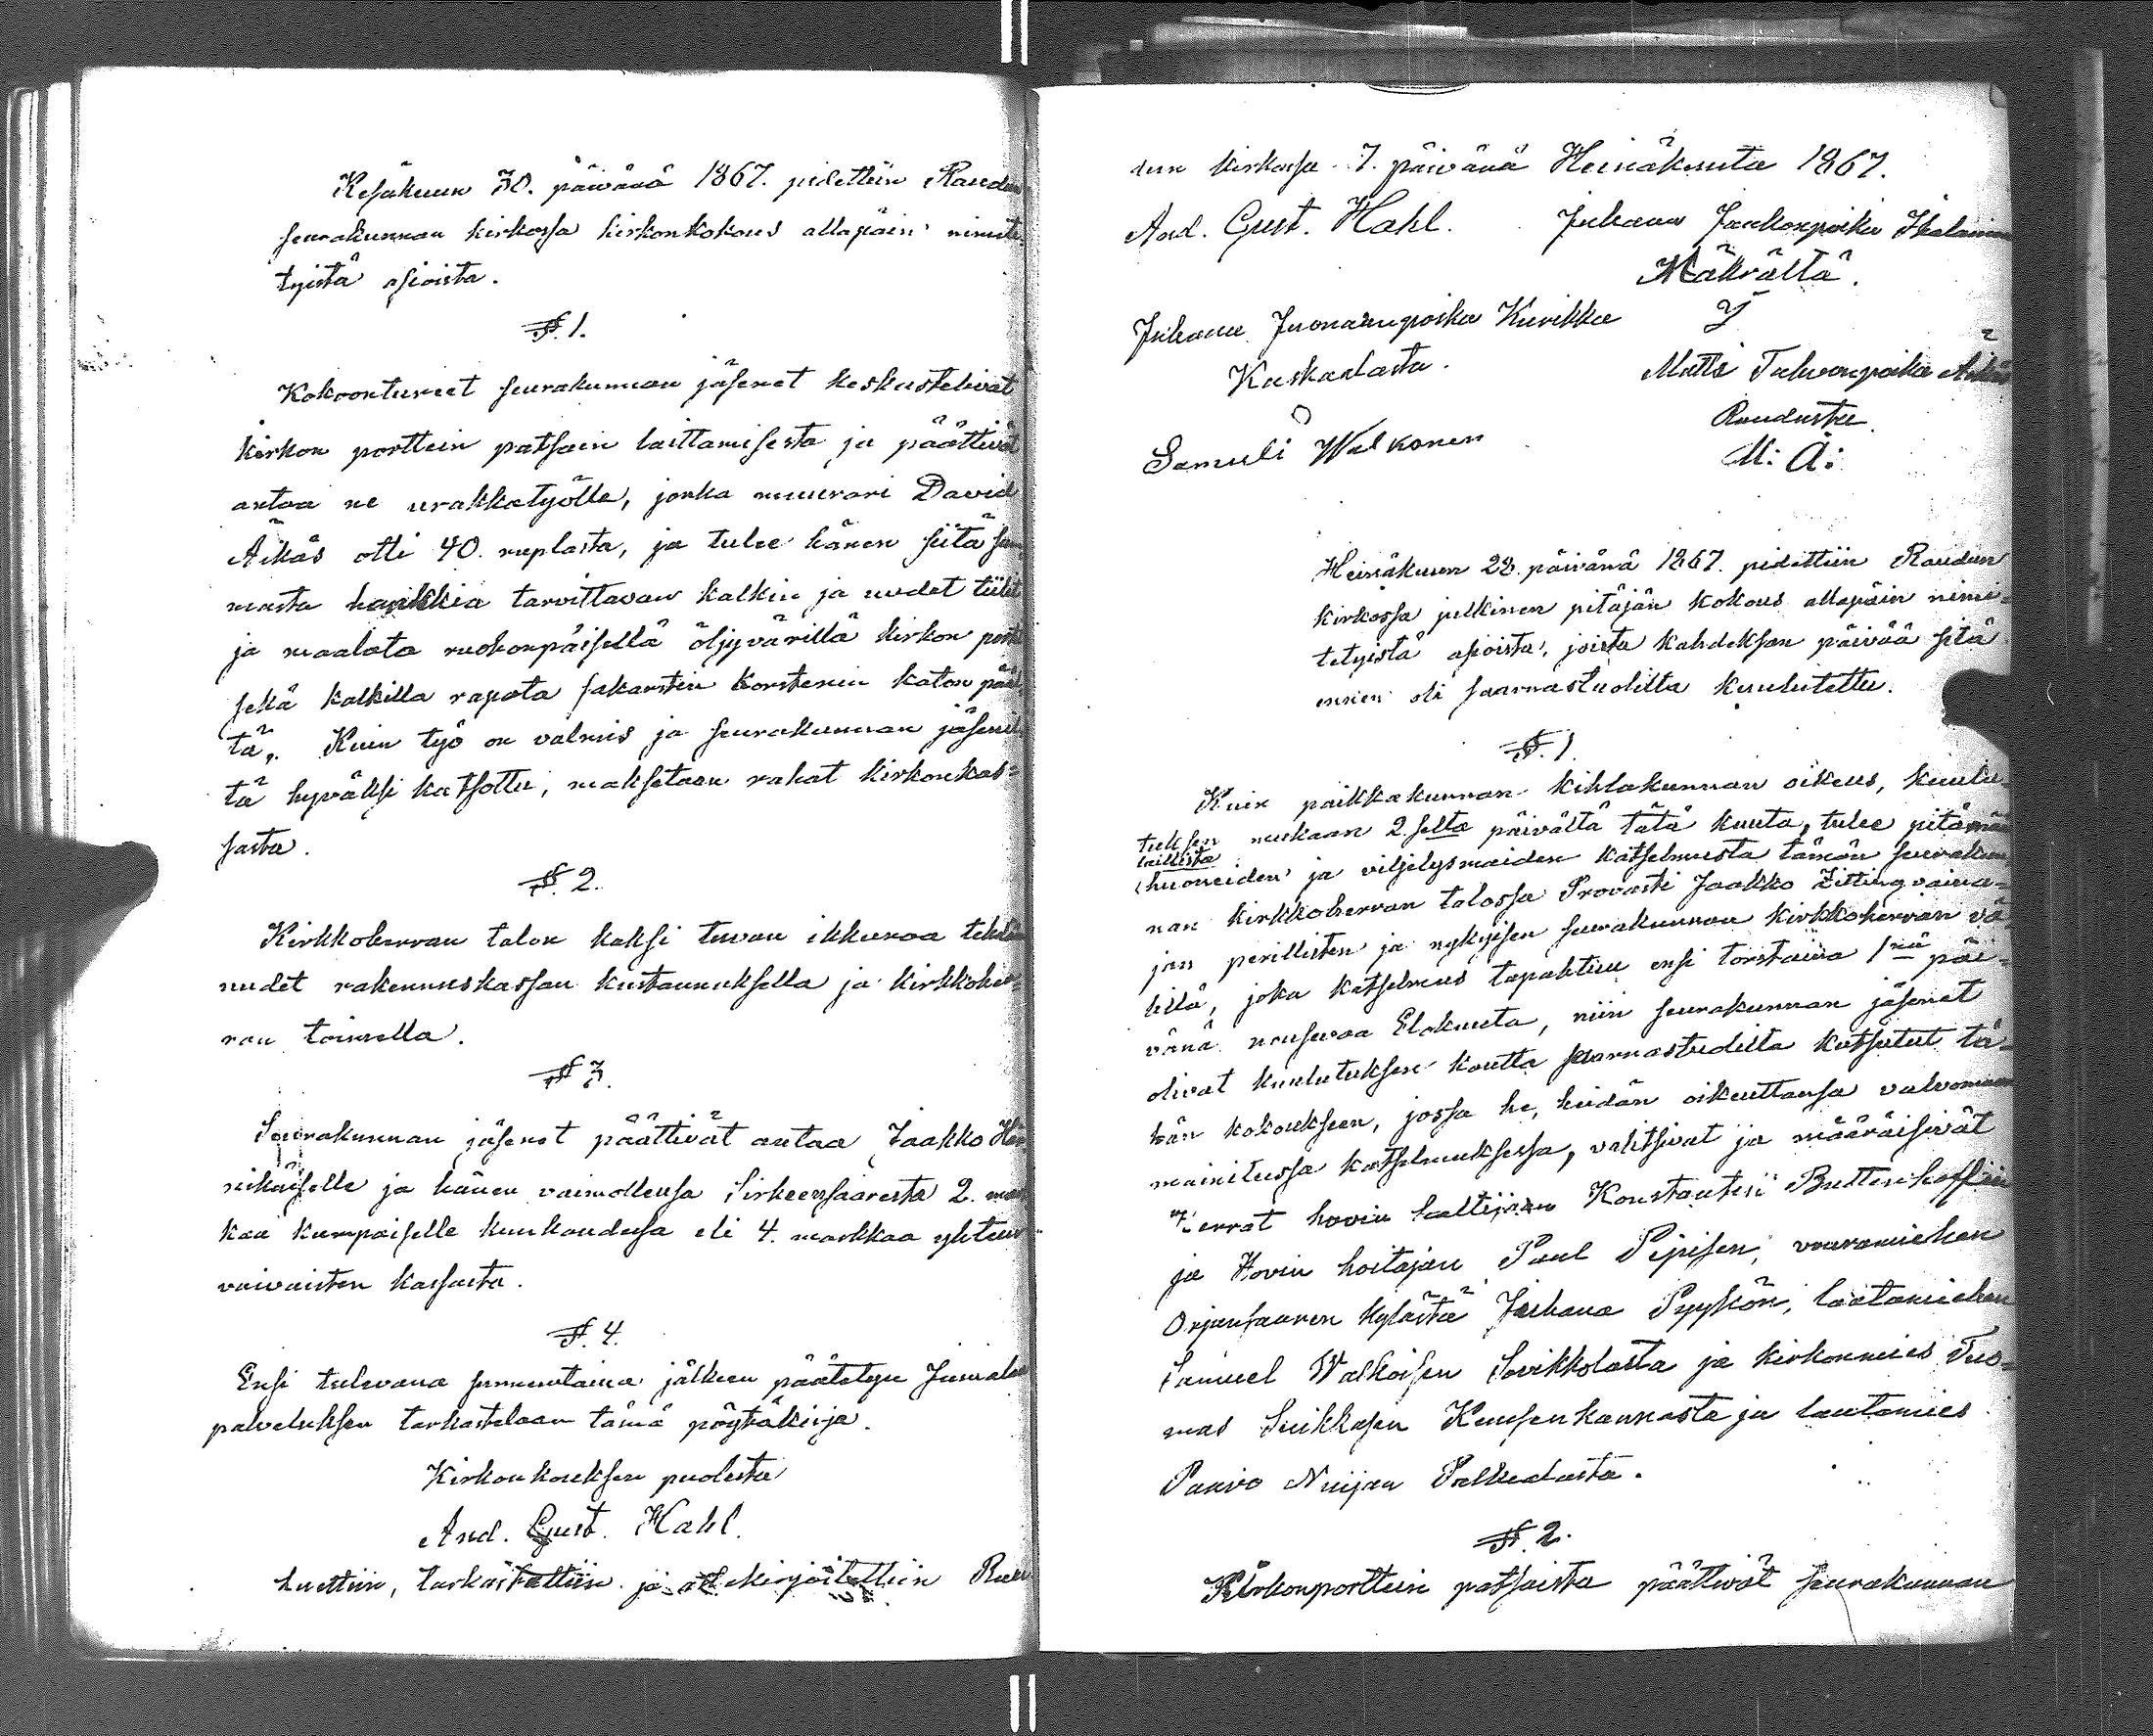 Kesäkuun 30. päivänä 1867. pidettiin Raudun
seurakunnan kirkossa kirkonkokous allapäin nimite-
tyistä asioista.
§. 1.
Kokoontuneet seurakunnan jäsenet keskustelivat
kirkon porttein patsain laittamisesta ja päättivät
antaa ne urakkatyölle, jonka muurari David
Äikäs otti 40. ruplasta, ja tulee hänen siitä sum
masta hankkia tarvittavan kalkin ja uudet tiilit
ja maalata ruohonpäisellä öljyvärillä kirkon portit
sekä kalkilla rapata sakarstin korstenin katon pääl
tä. Kuin työ on valmis ja seurakunnan jäsenil
tä hyväksi katsottu, maksetaan rahat kirkonkas=
sasta.
§. 2.
Kirkkoherran talon kaksi tuvan ikkunaa tehdään
uudet rakennuskassan kustannuksella ja kirkkoher
ran toimella.
§ 3.
Seurakunnan jäsenet päättivät antaa Jaakko
ja hänen vaimollensa Sirkeensaaresta 2. mark
kaa kumpaiselle kuukaudessa eli 4. markkaa yhteen
vaivaisten kassasta.
§. 4.
Ensi tulevana sunnuntaina jälkeen päätetyn Jumalan
palveluksen tarkastelaan tämä pöytäkirja.
Kirkonkouksen puolesta
And. Gust. Hahl.
luettiin, tarkastettiin ja allekirjoitettiin Rau
dun kirkossa 7. päivänä Heinäkuuta 1867.
And. Gust. Hahl. Juhana Jaakonpoika Ikalainen
Mäkrältä.
Juhana Juonaanpoika Kuvikka
Kaskaalasta.
Matti Tahvonpoika Äikäs
Raudusta
Samuli Walkonen M: Ä:
Heinäkuun 28. päivänä 1867. pidettiin Raudun
kirkossa julkinen pitäjän kokous allapäin nimi=
tetyistä asioista, joista kahdeksan päivää sitä
ennen oli saarnastuolilta kuulutettu.
§. 1.
Kuin paikkakunnan kihlakunnan oikeus, kuulu-
tuksen mukaan 2.selta päivältä tätä kuuta, tulee pitämään
laillista
huoneiden ja viljelysmaiden katselmusta tämän seurakun
nan kirkkoherran talossa Provasti Jaakko Zitting vaina=
jan perillisten ja nykyisen seurakunnan kirkkoherran vä=
lillä, joka katselmus tapahtuu ensi torstaina 1nä päi=
vänä nousevaa Elokuuta, niin seurakunnan jäsenet
olivat kuulutuksen kautta saarnastuolilta kutsutut tä=
hän kokoukseen, jossa he, heidän oikeuttansa valvomaan
mainitussa katselmuksessa, valitsivat ja määräisivät
Herrat hovin haltijan Konstantin
ja Hovin hoitajan Paul Pipisen, vuoramiehen
Orjansaaren kylästä Juhana Pyykön, lautamiehen
Samuel Walkoisen Sovikkolasta ja kirkonmies Tuo=
mas Suikkasen Keusenkannasta ja lautamies
Paavo Nuijan Palkealasta.
§. 2.
Kirkonporttein patsaista päättivät seurakunnan